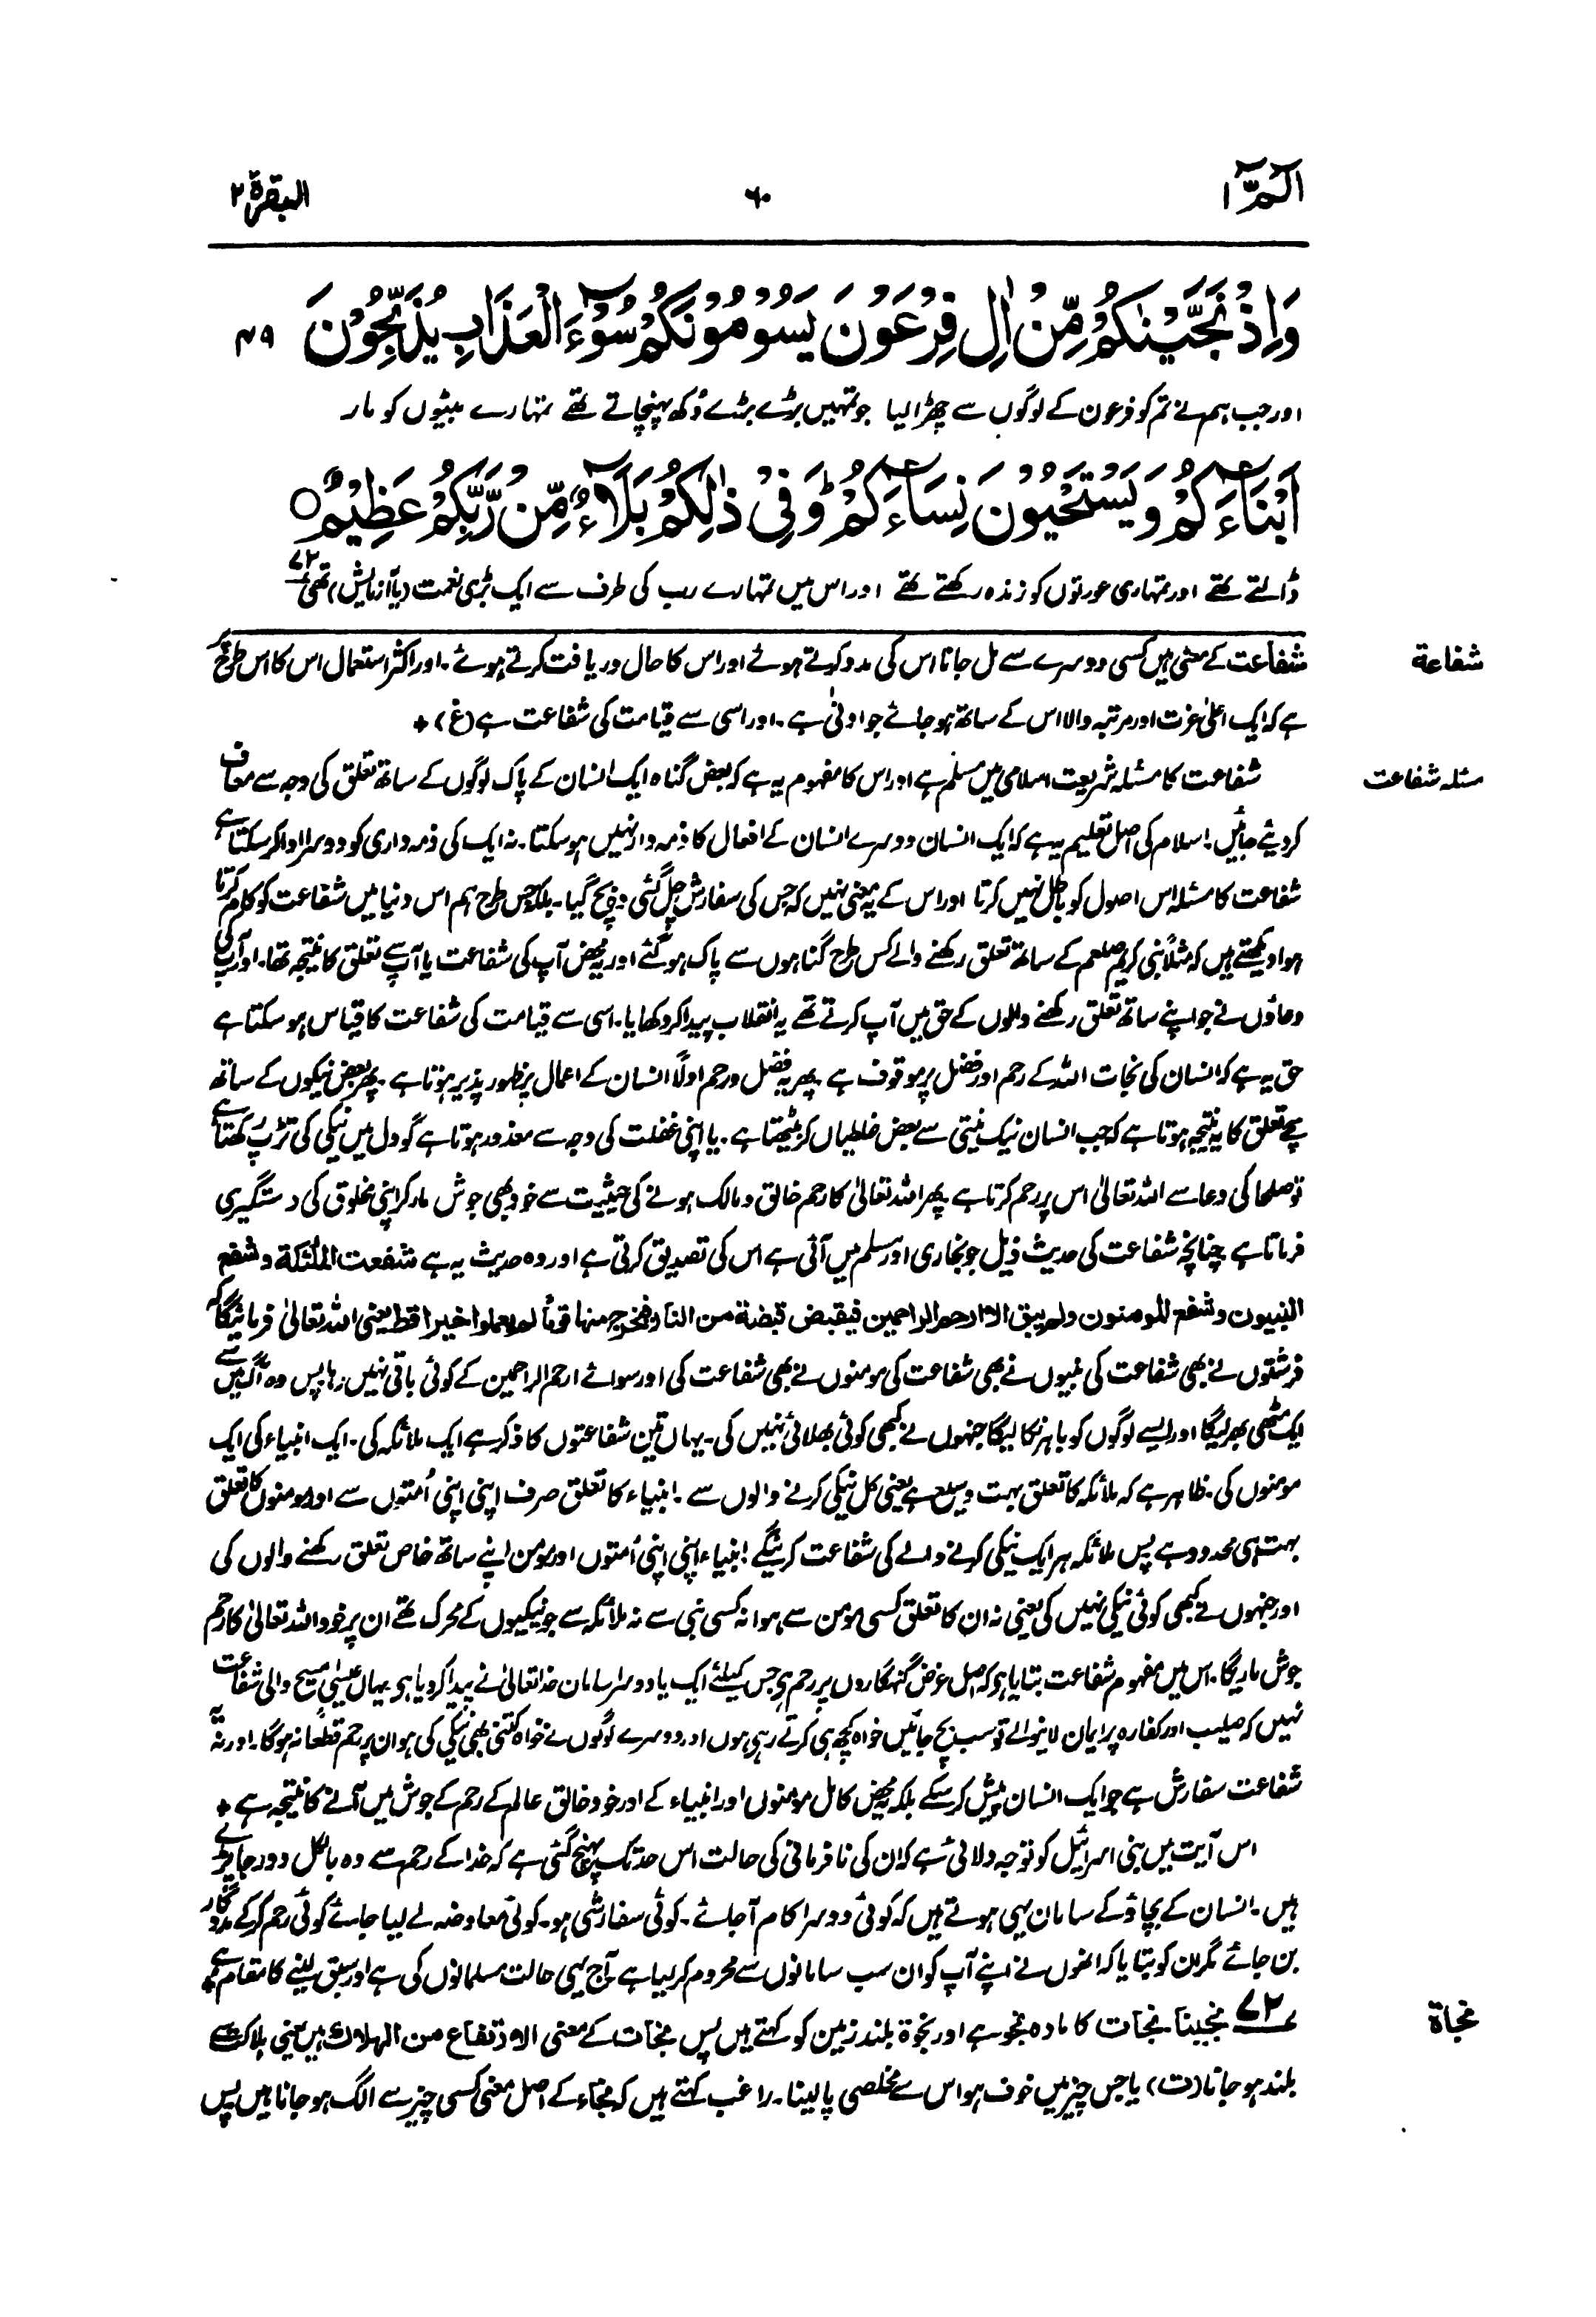 الٓمّٓ ۱
۶۰
البقرۃ ۲
وَاِذْ نَجَّیْنٰکُمْ مِّنْ اٰلِ فِرْعَوْنَ یَسُوْمُوْنَکُمْ سُوْٓءَ الْعَذَابِ یُذَبِّحُوْنَ
۴۹
اور جب ہم نے تم کو فرعون کے لوگوں سے چھڑا لیا جو تمہیں بڑے بڑے دُکھ پہنچاتے تھے تمہارے بیٹوں کو مار
اَبْنَآءَکُمْ وَیَسْتَحْیُوْنَ نِسَآءَکُمْ ؕ وَفِیْ ذٰلِکُمْ بَلَآءٌ مِّنْ رَّبِّکُمْ عَظِیْمٌ ○
ڈالتے تھے اور تمہاری عورتوں کو زندہ رکھتے تھے اور اس میں تمہارے رب کی طرف سے ایک بڑی نعمت (یا آزمایش) تھی ۷۲
شفاعة
شفاعت کے معنی ہیں کسی دوسرے سے مل جانا اس کی مدد کرتے ہوئے اور اس کا حال دریافت کرتے ہوئے۔ اور اکثر استعمال اس کا اس طرح پر
ہے کہ ایک اعلیٰ عزت اور مرتبہ والا اس کے ساتھ ہو جائے جو ادنیٰ ہے۔ اور اسی سے قیامت کی شفاعت ہے (غ) +
مسئلہ شفاعت
شفاعت کا مسئلہ شریعت اسلامی میں مسلّم ہے اور اس کا مفہوم یہ ہے کہ بعض گناہ ایک انسان کے پاک لوگوں کے ساتھ تعلق کی وجہ سے معاف
کر دیئے جائیں۔ اسلام کی اصل تعلیم یہ ہے کہ ایک انسان دوسرے انسان کے افعال کا ذمہ دار نہیں ہو سکتا۔ نہ ایک کی ذمہ داری کو دوسرا ادا کر سکتا ہے
شفاعت کا مسئلہ اس اصول کو باطل نہیں کرتا اور اس کے یہ معنی نہیں کہ جس کی سفارش چل گئی وہ بچ گیا۔ بلکہ جس طرح ہم اس دنیا میں شفاعت کو کام کرتا
ہوا دیکھتے ہیں کہ مثلًا نبی کریم صلعم کے ساتھ تعلق رکھنے والے کس طرح گناہوں سے پاک ہو گئے اور یہ محض آپ کی شفاعت یا آپ سے تعلق کا نتیجہ تھا۔ اور آپ کی
دعاؤں نے جو اپنے ساتھ تعلق رکھنے والوں کے حق میں آپ کرتے تھے یہ انقلاب پیدا کر دکھایا۔ اسی سے قیامت کی شفاعت کا قیاس ہو سکتا ہے
حق یہ ہے کہ انسان کی نجات اللہ کے رحم اور فضل پر موقوف ہے۔ پھر یہ فضل و رحم اولًا انسان کے اعمال پر ظہور پذیر ہوتا ہے۔ پھر بعض نیکوں کے ساتھ
سچے تعلق کا یہ نتیجہ ہوتا ہے کہ جب انسان نیک نیتی سے بعض غلطیاں کر بیٹھتا ہے۔ یا اپنی غفلت کی وجہ سے معذور ہوتا ہے گو دل میں نیکی کی تڑپ رکھتا ہے
تو صلحا کی دعا سے اللہ تعالیٰ اس پر رحم کرتا ہے۔ پھر اللہ تعالیٰ کا رحم خالق و مالک ہونے کی حیثیت سے خود بھی جوش مار کر اپنی مخلوق کی دستگیری
فرماتا ہے چنانچہ شفاعت کی حدیث ذیل جو بخاری اور مسلم میں آئی ہے اس کی تصدیق کرتی ہے اور وہ حدیث یہ ہے شفعت الملٰئکة و شفع
النبیون و شفع المومنون ولم یبق الا ارحم الراحمین فیقبض قبضة من النار فیخرج منها قوماً لم یعملوا خیرا قط یعنی اللہ تعالیٰ فرمائیگا کہ
فرشتوں نے بھی شفاعت کی نبیوں نے بھی شفاعت کی مومنوں نے بھی شفاعت کی اور سوائے ارحم الراحمین کے کوئی باقی نہیں رہا پس وہ آگ میں سے
ایک مٹھی بھر لیگا اور ایسے لوگوں کو باہر نکا لیگا جنہوں نے کبھی کوئی بھلائی نہیں کی۔ یہاں تین شفاعتوں کا ذکر ہے ایک ملائکہ کی۔ ایک انبیاء کی ایک
مومنوں کی۔ ظاہر ہے کہ ملائکہ کا تعلق بہت وسیع ہے یعنی کل نیکی کرنے والوں سے۔ انبیاء کا تعلق صرف اپنی اپنی اُمتوں سے اور مومنوں کا تعلق
بہت ہی محدود ہے پس ملائکہ ہر ایک نیکی کرنے والے کی شفاعت کرینگے انبیاء اپنی اپنی اُمتوں اور مومن اپنے ساتھ خاص تعلق رکھنے والوں کی
اور جنہوں نے کبھی کوئی نیکی نہیں کی یعنی نہ ان کا تعلق کسی مومن سے ہوا نہ کسی نبی سے نہ ملائکہ سے جو نیکیوں کے محرک تھے ان پر خود اللہ تعالیٰ کا رحم
جوش ماریگا۔ اس میں مفہوم شفاعت بتایا ہو کہ اصل غرض گنہگاروں پر رحم ہو جس کیلئے ایک یا دوسرا سامان خدا تعالیٰ نے پیدا کر دیا ہو یہاں عیسٰی مسیح والی شفاعت
نہیں کہ صلیب اور کفارہ پر ایمان لانیوالے تو سب بچ جائیں خواہ کچھ ہی کرتے رہی ہوں اور دوسرے لوگوں نے خواہ کتنی بھی نیکی کی ہو ان پر رحم قطعًا نہ ہوگا۔ اور نہ یہ
شفاعت سفارش ہے جو ایک انسان پیش کر سکے بلکہ یہ محض کامل مومنوں اور انبیاء کے اور خود خالق عالم کے رحم کے جوش میں آنے کا نتیجہ ہے +
اس آیت میں بنی اسرائیل کو توجہ دلائی ہے کہ ان کی نافرمانی کی حالت اس حد تک پہنچ گئی ہے کہ خدا کے رحم سے وہ بالکل دور جا پڑے
ہیں۔ انسان کے بچاؤ کے سامان یہی ہوتے ہیں کہ کوئی دوسرا کام آ جائے۔ کوئی سفارشی ہو۔ کوئی معاوضہ لے لیا جائے کوئی رحم کر کے مددگار
بن جائے مگر ان کو بتایا کہ انھوں نے اپنے آپ کو ان سب سامانوں سے محروم کر لیا ہے آج یہی حالت مسلمانوں کی ہے اور سبق لینے کا مقام ہے +
نجاة
۷۲ نجینا نجات کا مادہ نجو ہے اور نجوة بلند زمین کو کہتے ہیں پس نجات کے معنی الارتفاع من الهلاك ہیں یعنی ہلاکت سے
بلند ہو جانا (ت) یا جس چیز میں خوف ہو اس سے مخلصی پا لینا۔ راغب کہتے ہیں کہ نجاء کے اصل معنی کسی چیز سے الگ ہو جانا ہیں پس